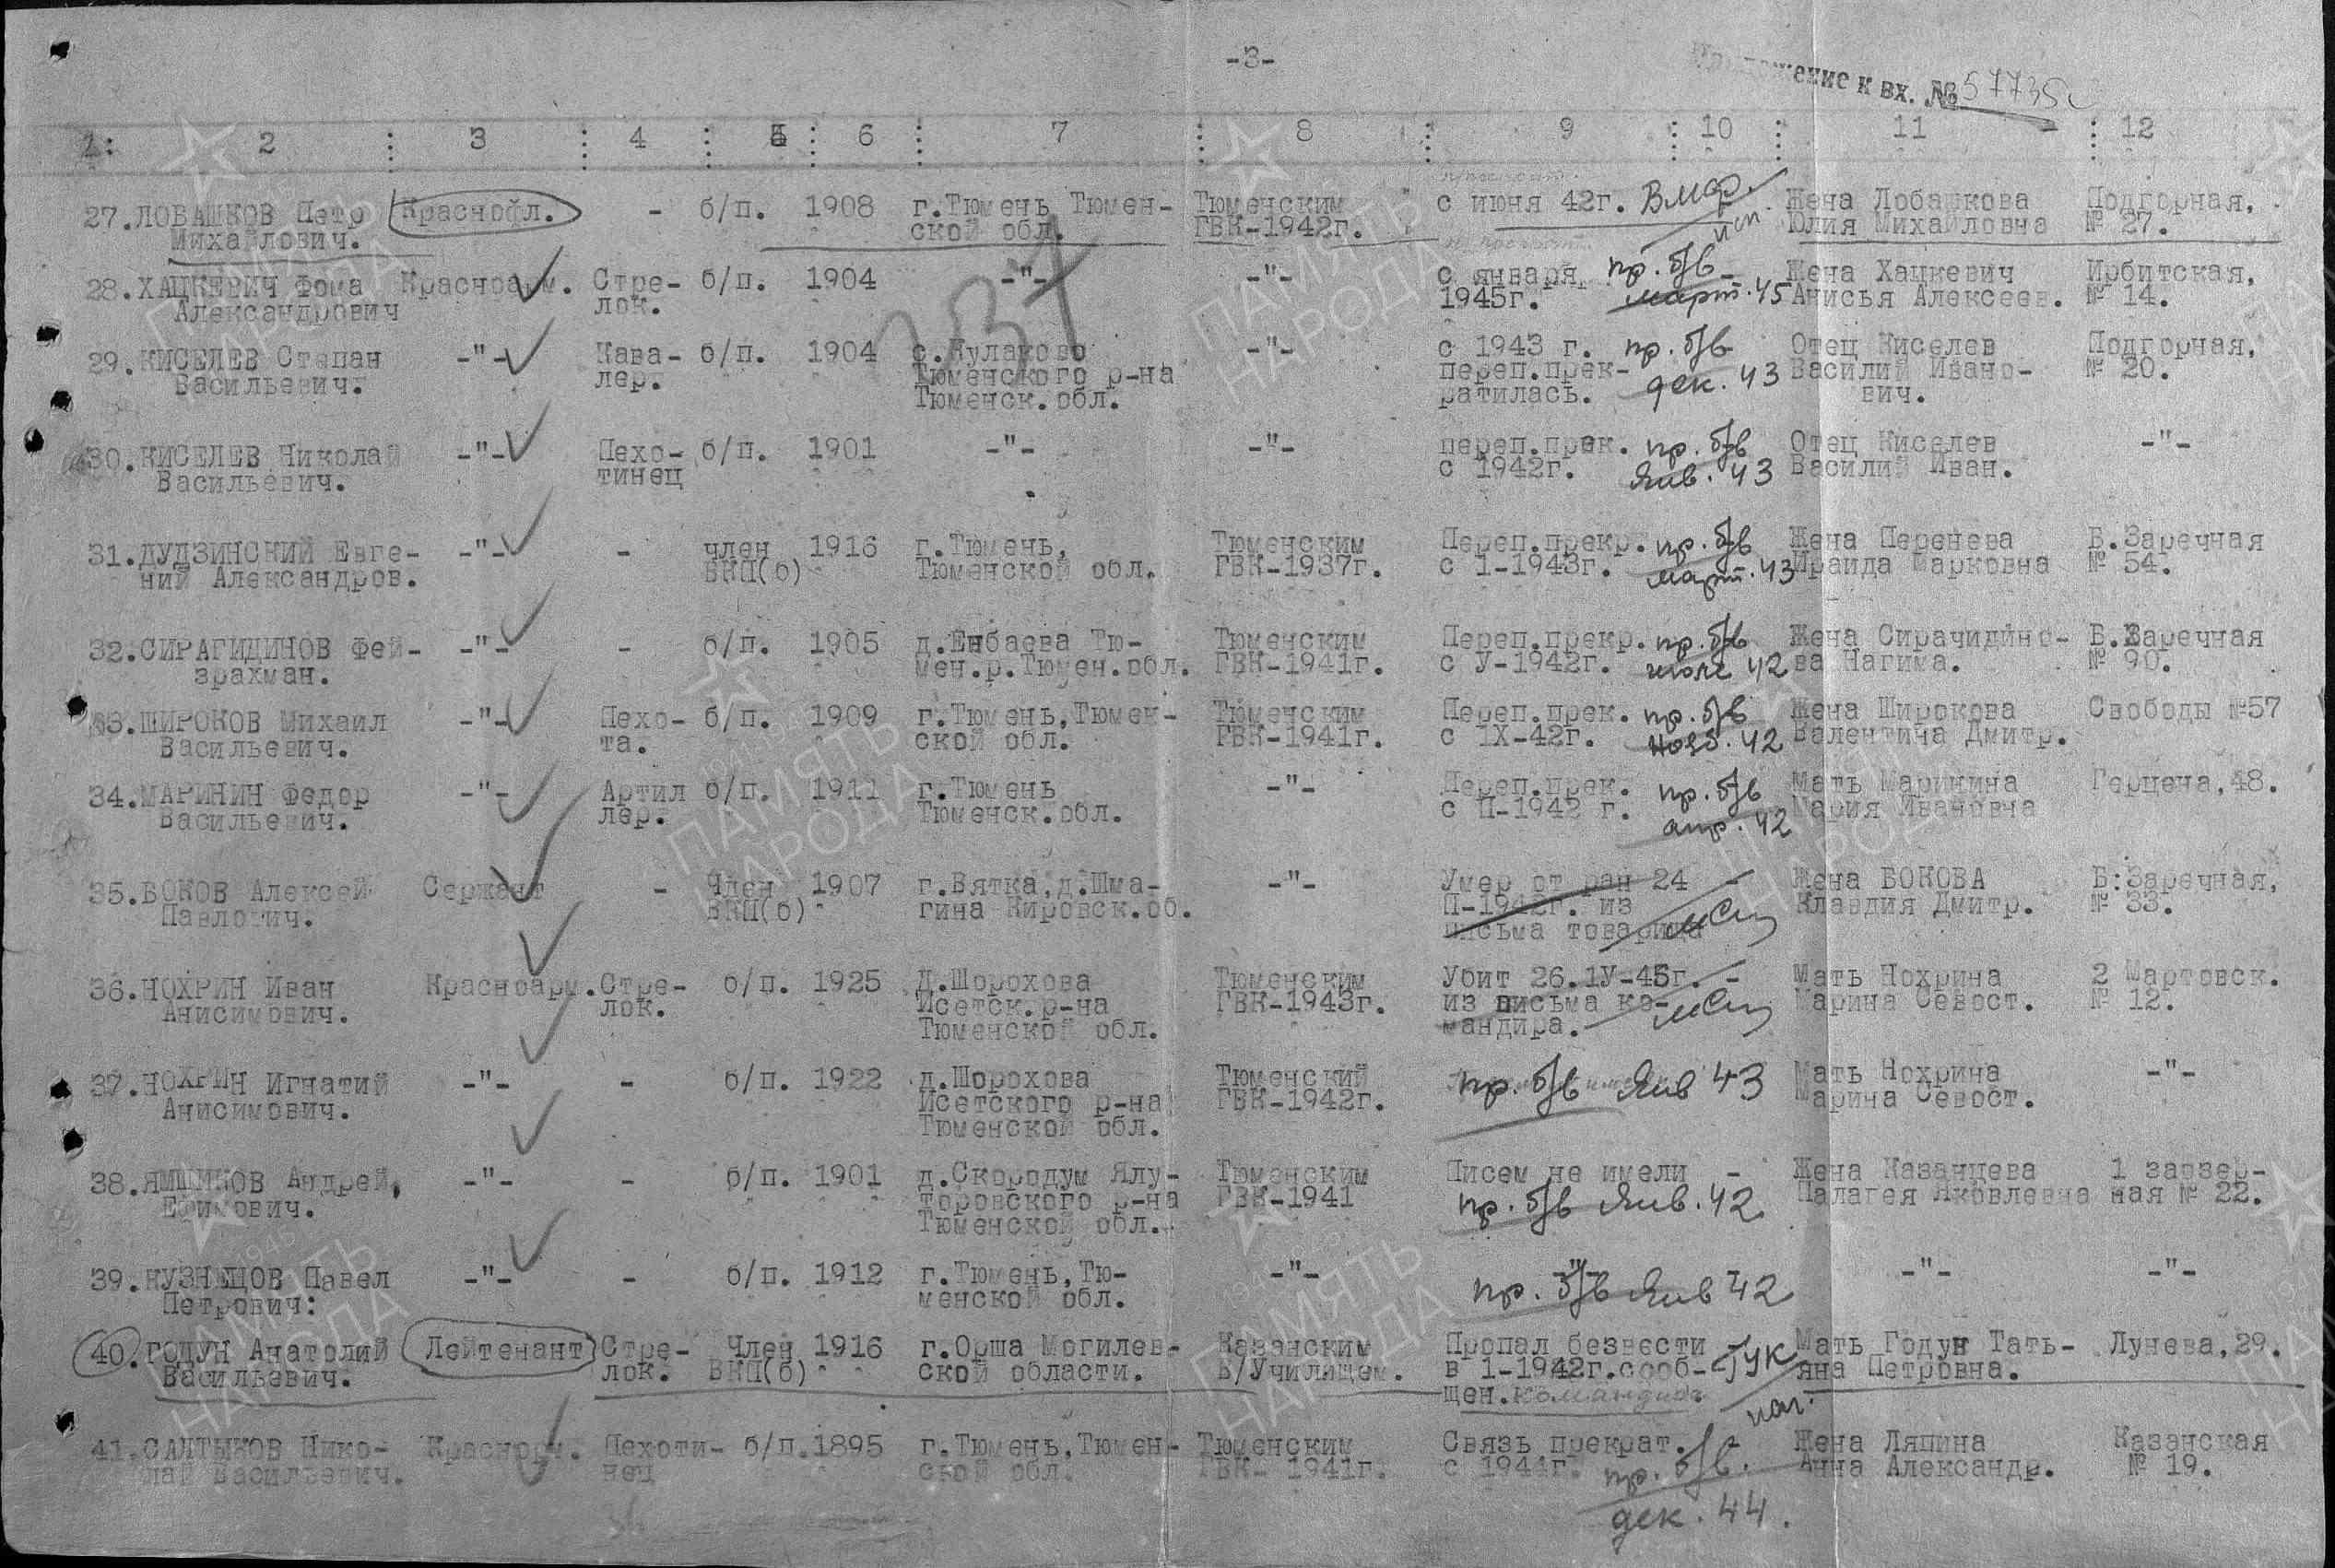 -3-
Приложение к вх. № 57735с
1: 2 : 3 : 4 : 5 : 6 : 7 : 8 : 9 : 10 : 11 : 12
27.ЛОБАШКОВ Петр Краснофл. - б/п. 1908 г.Тюмень Тюмен- Тюменским с июня 42г. В мор. Жена Лобашкова Подгорная,
Михайлович. ской обл. ГВК-1942г. исп. Юлия Михайловна № 27.
28.ХАЦКЕВИЧ Фома Красноарм. Стре- б/п. 1904 -"- -"- с января пр. б/в - Жена Хацкевич Ирбитская,
Александрович лок. 1945г. март. 45 Анисья Алексеев. № 14.
29.КИСЕЛЕВ Степан -"- Кава- б/п. 1904 с.Кулаково -"- с 1943 г. пр. б/в Отец Киселев Подгорная,
Васильевич. лер. Тюменского р-на переп.прек- дек. 43 Василий Ивано- № 20.
Тюменск.обл. ратилась. вич.
30.КИСЕЛЕВ Николай -"- Пехо- б/п. 1901 -"- -"- переп.прек. пр. б/в Отец Киселев -"-
Васильевич. тинец с 1942г. Янв. 43 Василий Иван.
31.ДУДЗИНСКИЙ Евге- -"- - член 1916 г.Тюмень, Тюменским Переп.прекр. пр. б/в Жена Перенева Б.Заречная
ний Александров. ВКП(б) Тюменской обл. ГВК-1937г. с 1-1943г. март. 43 Ираида Марковна № 54.
32.СИРАГИДИНОВ Фей- -"- - б/п. 1905 д.Енбаева Тю- Тюменским Переп.прекр. пр. б/в Жена Сирачидино- Б.Заречная
зрахман. мен.р.Тюмен.обл. ГВК-1941г. с У-1942г. июле 42 ва Нагима. № 90.
33.ШИРОКОВ Михаил -"- Пехо- б/п. 1909 г.Тюмень,Тюмен- Тюменским Переп.прек. пр. б/в Жена Широкова Свободы №57
Васильевич. та. ской обл. ГВК-1941г. с 1Х-42г. нояб. 42 Валентича Дмитр.
34.МАРИНИН Федор -"- Артил б/п. 1911 г.Тюмень -"- Переп.прек. пр. б/в Мать Маринина Герцена,48.
Васильевич. лер. Тюменск.обл. с П-1942 г. апр. 42 Мария Ивановна
35.БОКОВ Алексей Сержант - Член 1907 г.Вятка,д.Шма- -"- Умер от ран 24 - Жена БОКОВА Б:Заречная,
Павлович. ВКП(б) гина Кировск.об. П-1942г. из Клавдия Дмитр. № 33.
письма товарища
36.НОХРИН Иван Красноарм. Стре- б/п. 1925 Д.Шорохова Тюменским Убит 26.1У-45г. - Мать Нохрина 2 Мартовск.
Анисимович. лок. Исетск.р-на ГВК-1943г. из письма ко- Марина Севост. № 12.
Тюменской обл. мандира.
37.НОХРИН Игнатий -"- - б/п. 1922 д.Шорохова Тюменский пр. б/в Янв 43 Мать Нохрина -"-
Анисимович. Исетского р-на ГВК-1942г. Марина Севост.
Тюменской обл.
38.ЯМЩИКОВ Андрей, -"- - б/п. 1901 д.Скородум Ялу- Тюменским Писем не имели - Жена Казанцева 1 заозер-
Ефимович. торовского р-на ГВК-1941 пр. б/в Янв. 42 Палагея Яковлевна ная № 22.
Тюменской обл.
39.КУЗНЕЦОВ Павел -"- - б/п. 1912 г.Тюмень,Тю- -"- -"- - -"- -"-
Петрович: менской обл. пр. б/в Янв 42
40.ГОДУН Анатолий Лейтенант Стре- Член 1916 г.Орша Могилев- Казанским Пропал безвести ГУК Мать Годун Тать- Лунева,29.
Васильевич. лок. ВКП(б) ской области. В/Училищем. в 1-1942г.сооб- яна Петровна.
щен.командира
41.САЛТЫКОВ Нико- Красноарм. Пехоти- б/п.1895 г.Тюмень,Тюмен- Тюменским Связь прекрат. - Жена Ляпина Казанская
лай Васильевич. нец ской обл. ГВК- 1941г. с 1944г. пр. б/в. Анна Александр. № 19.
дек. 44.